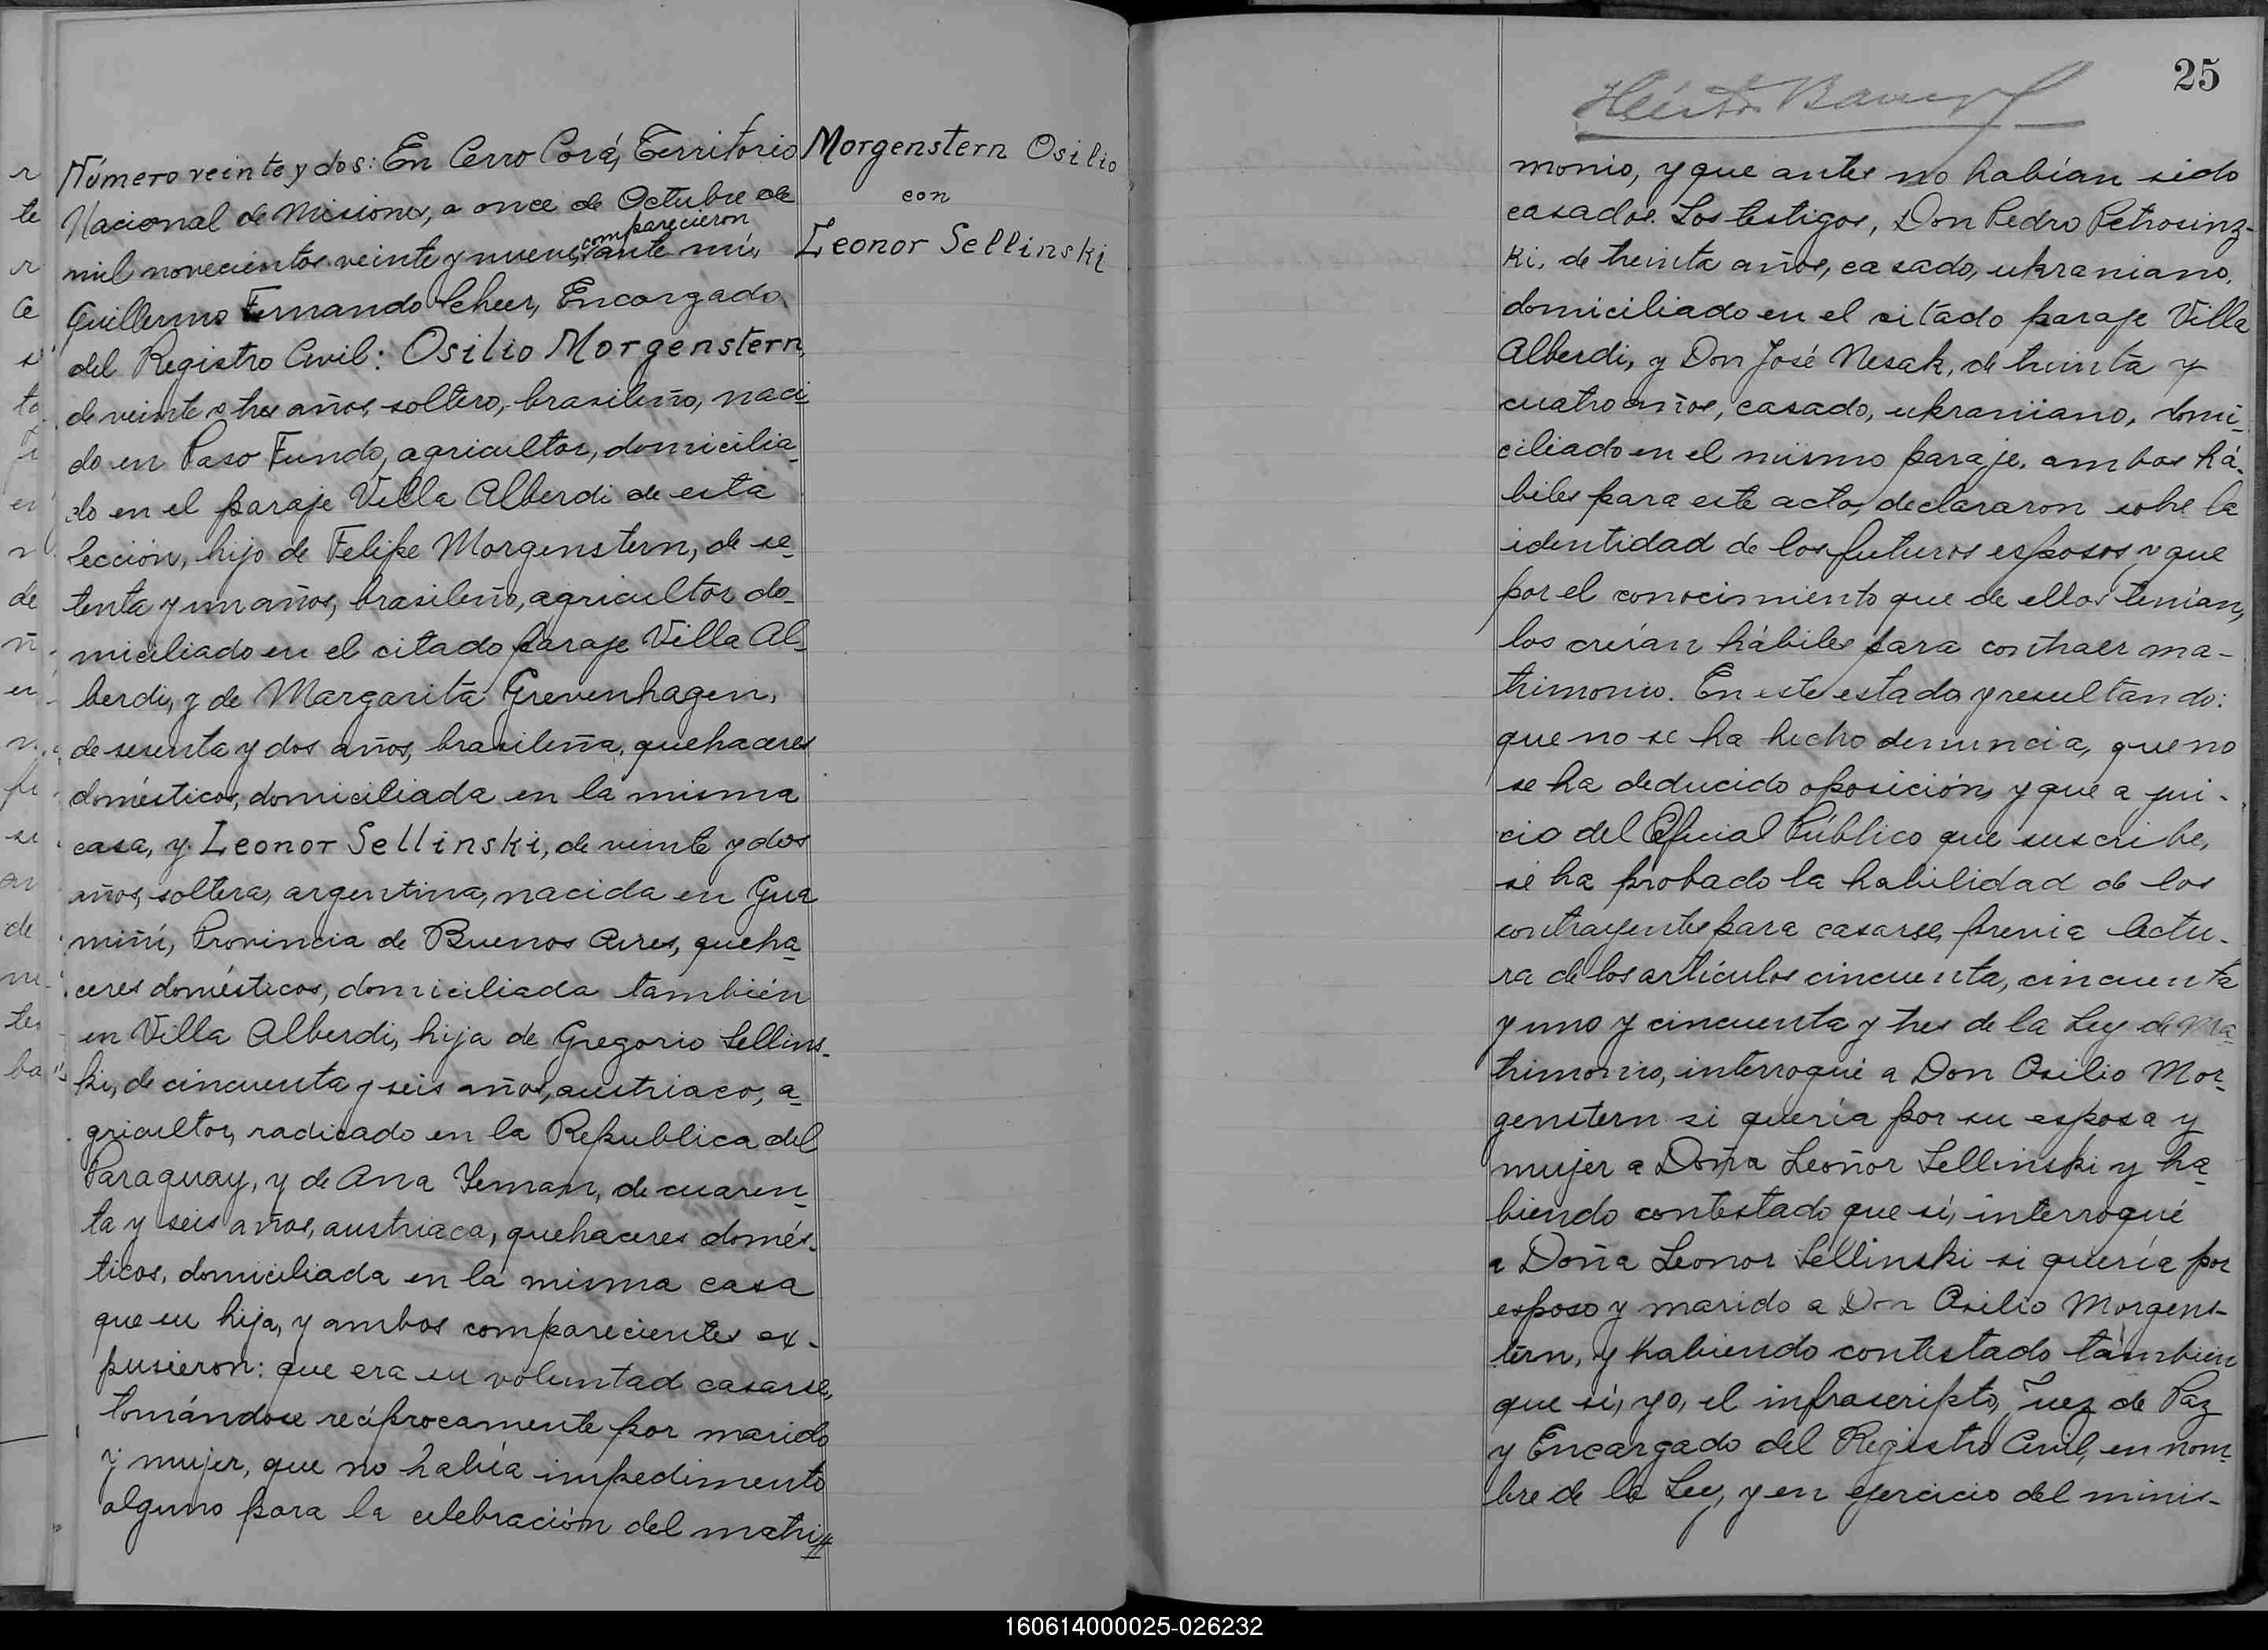 Número veinte y dos: En Cerro Corá, Territorio
Nacional de Misiones, a once de Octubre de
mil novecientos veinte y nueve, comparecieron ante mí,
Guillermo Fernando Scheer, Encargado
del Registro Civil: Osilio Morgenstern,
de veinte y tres años, soltero, brasileño, naci-
do en Paso Fundo, agricultor, domicilia-
do en el paraje Villa Alberdi de esta
Sección, hijo de Felipe Morgenstern, de se-
tenta y un años, brasileño, agricultor do-
miciliado en el citado paraje Villa Al-
berdi, y de Margarita Grevenhagen,
de sesenta y dos años, brasileña, quehaceres
domésticos, domiciliada en la misma
casa, y Leonor Sellinski, de veinte y dos
años, soltera, argentina, nacida en Gua
miñí, Provincia de Buenos Aires, queha-
ceres domésticos, domiciliada también
en Villa Alberdi, hija de Gregorio Sellins-
ki, de cincuenta y seis años, austriaco, a-
gricultor, radicado en la Republica del
Paraguay, y de Ana Yeman, de cuaren-
ta y seis años, austriaca, quehaceres domés-
ticos, domiciliada en la misma casa
que su hija, y ambos comparecientes ex-
pusieron: que era su voluntad casarse,
tomándose recíprocamente por marido
y mujer, que no había impedimento
alguno para la celebración del matri//
Morgenstern Osilio
con
Leonor Sellinski
25
monio, y que antes no habían sido
casados. Los testigos, Don Pedro Petrosinz-
ki, de treinta años, casado, ukraniano,
domiciliado en el citado paraje Villa
Alberdi, y Don José Nesak, de treinta y
cuatro años, casado, ukraniano, domi-
ciliado en el mismo paraje, ambos há-
biles para este acto, declararon sobre la
identidad de los futuros esposos y que
por el conocimiento que de ellos tenían,
los creían hábiles para contraer ma-
trimonio. En este estado y resultando:
que no se ha hecho denuncia, que no
se ha deducido oposición, y que a jui-
cio del Oficial Público que suscribe,
se ha probado la habilidad de los
contrayentes para casarse, previa lectu-
ra de los artículos cincuenta, cincuenta
y uno y cincuenta y tres de la Ley de Ma-
trimonio, interrogué a Don Osilio Mor-
genstern si quería por su esposa y
mujer a Doña Leoñor Sellinski y ha-
biendo contestado que sí, interrogué
a Doña Leonor Sellinski si quería por
esposo y marido a Don Osilio Morgens-
tern, y habiendo contestado también
que sí, yo, el infrascripto, Juez de Paz
y Encargado del Registro Civil, en nom-
bre de la Ley, y en ejercicio del minis-
160614000025-026232